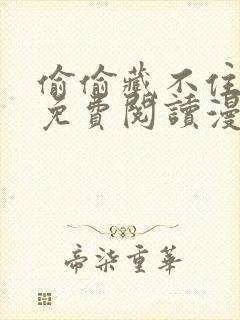 偷偷藏不住
免費閱讀漫
帝柒重華